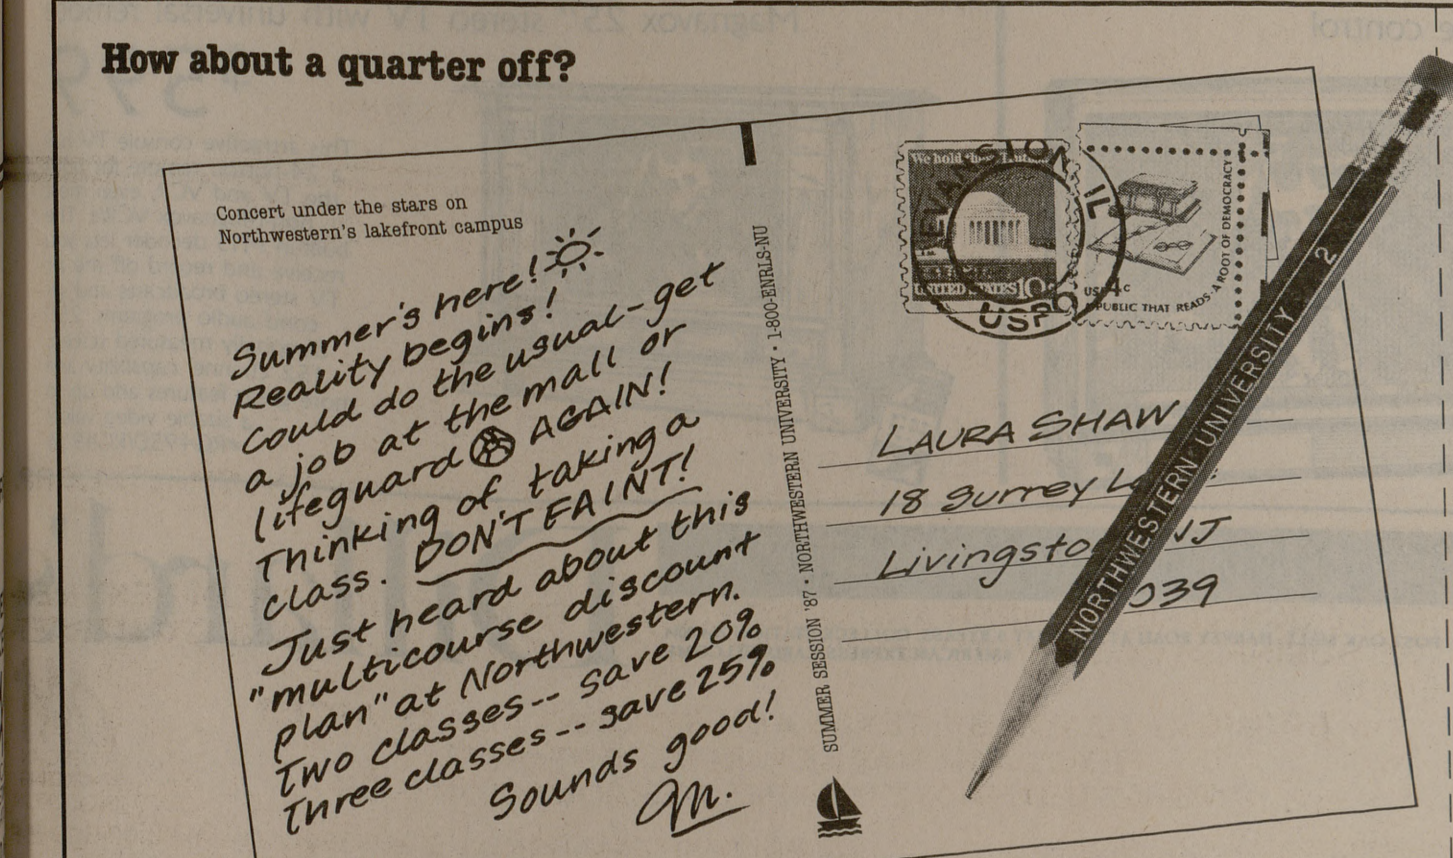 How about a quarter off?
Concert under the stars on
Northwestern's lakefront campus
Summer's here!
Reality begins!
Could do the usual-get
a job at the mall or
lifeguard AGAIN!
Thinking of taking a
class. DON'T FAINT!
Just heard about this
"multicourse discount
plan" at Northwestern.
Two classes-- save 20%
Three classes-- save 25%
Sounds good!
M.
SUMMER SESSION '87 • NORTHWESTERN UNIVERSITY • 1-800-ENRLS-NU
We hold
UNITED STATES 10c
EVANSTON IL
USPO
A PUBLIC THAT READS·A ROOT OF DEMOCRACY
LAURA SHAW
18 Surrey
Livingston NJ
039
NORTHWESTERN UNIVERSITY 2